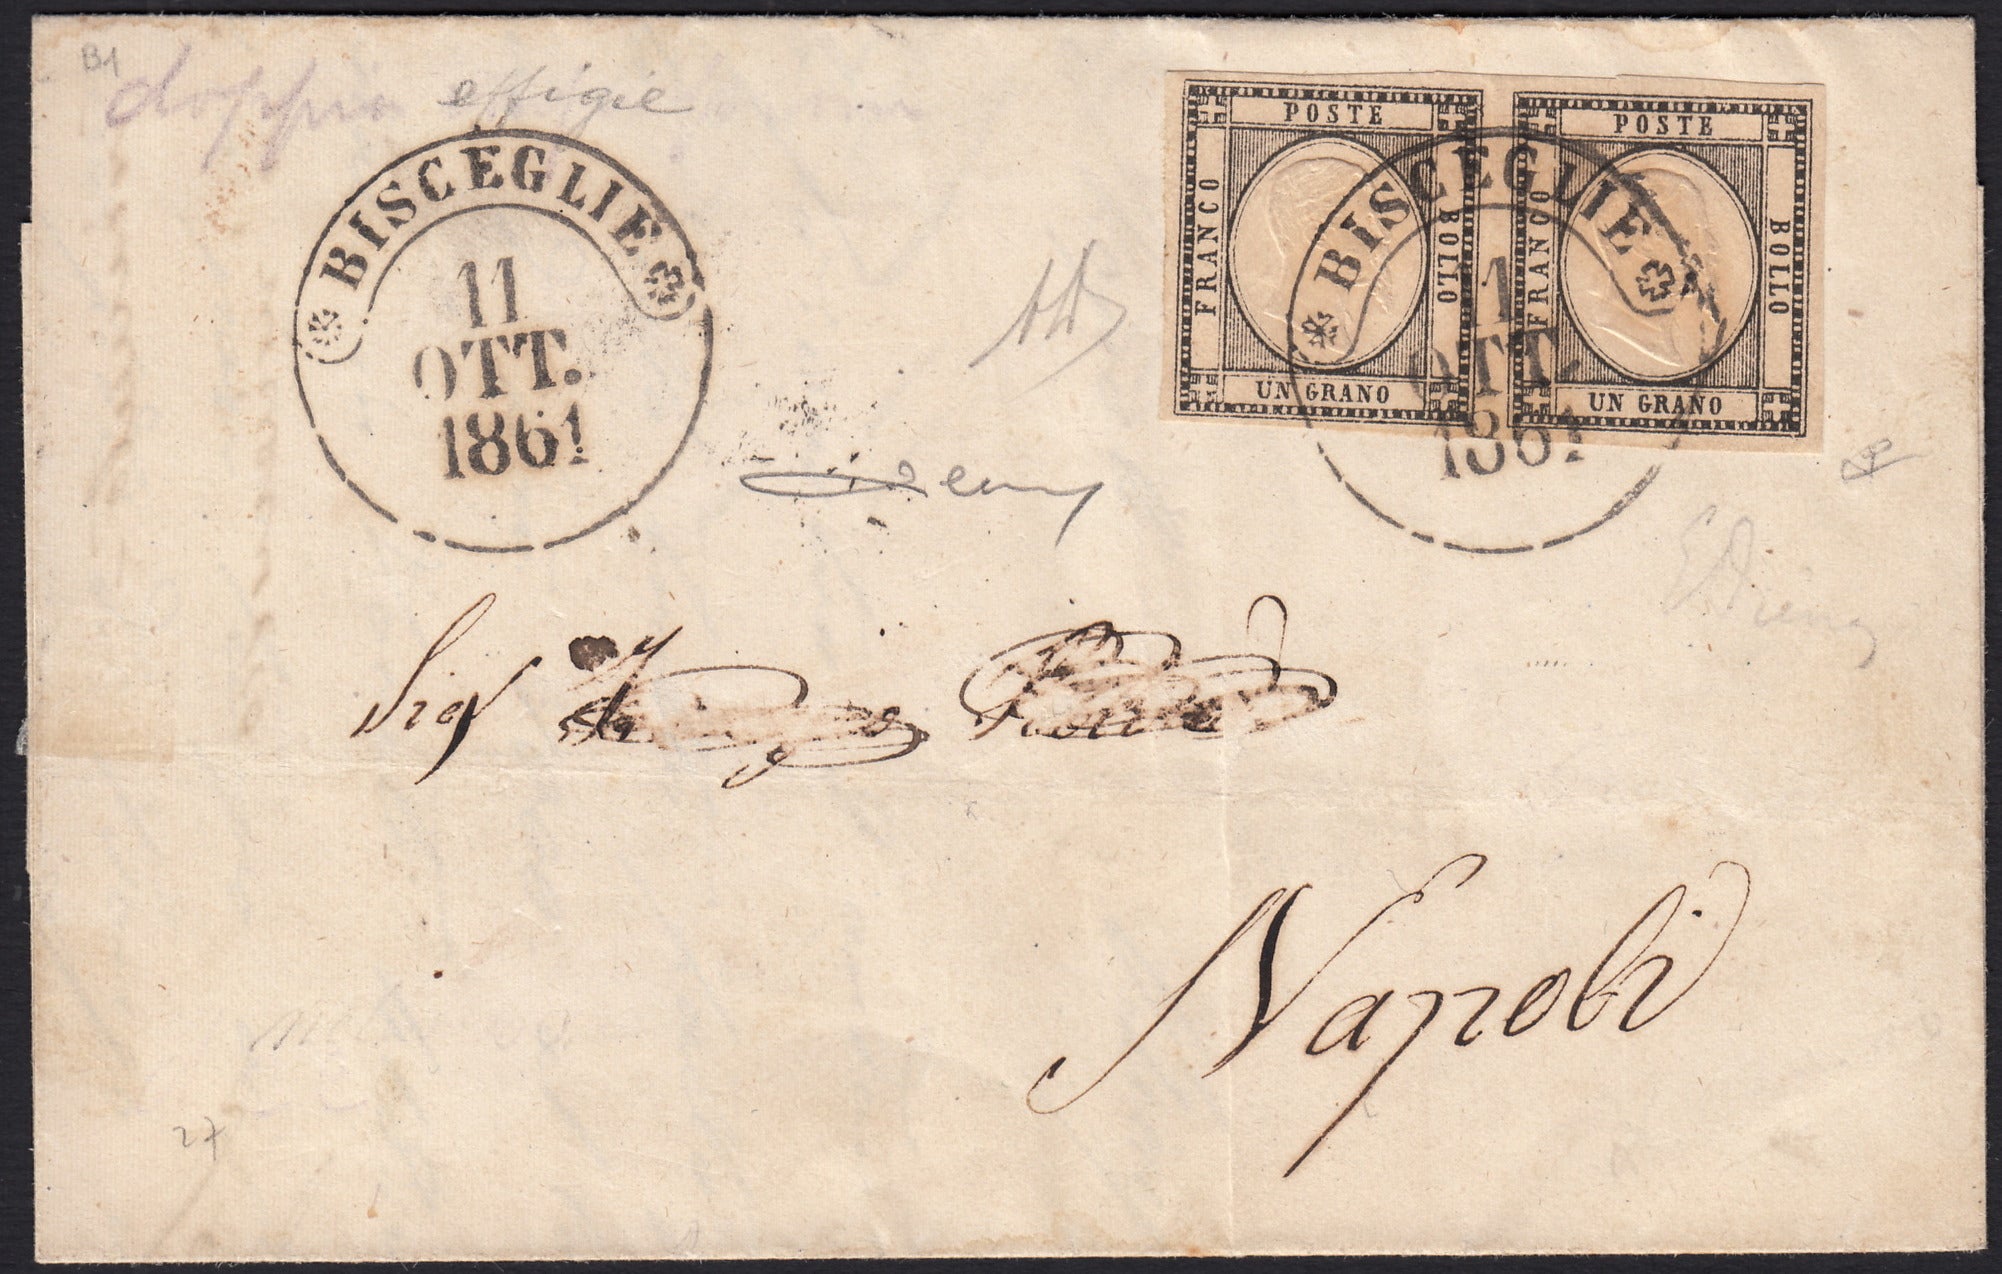 B1
doppia effigie
BISCEGLIE
11
OTT.
1861
POSTE
FRANCO
BOLLO
UN GRANO
POSTE
FRANCO
BOLLO
UN GRANO
BISCEGLIE
11
OTT.
1861
Sig
Napoli
27